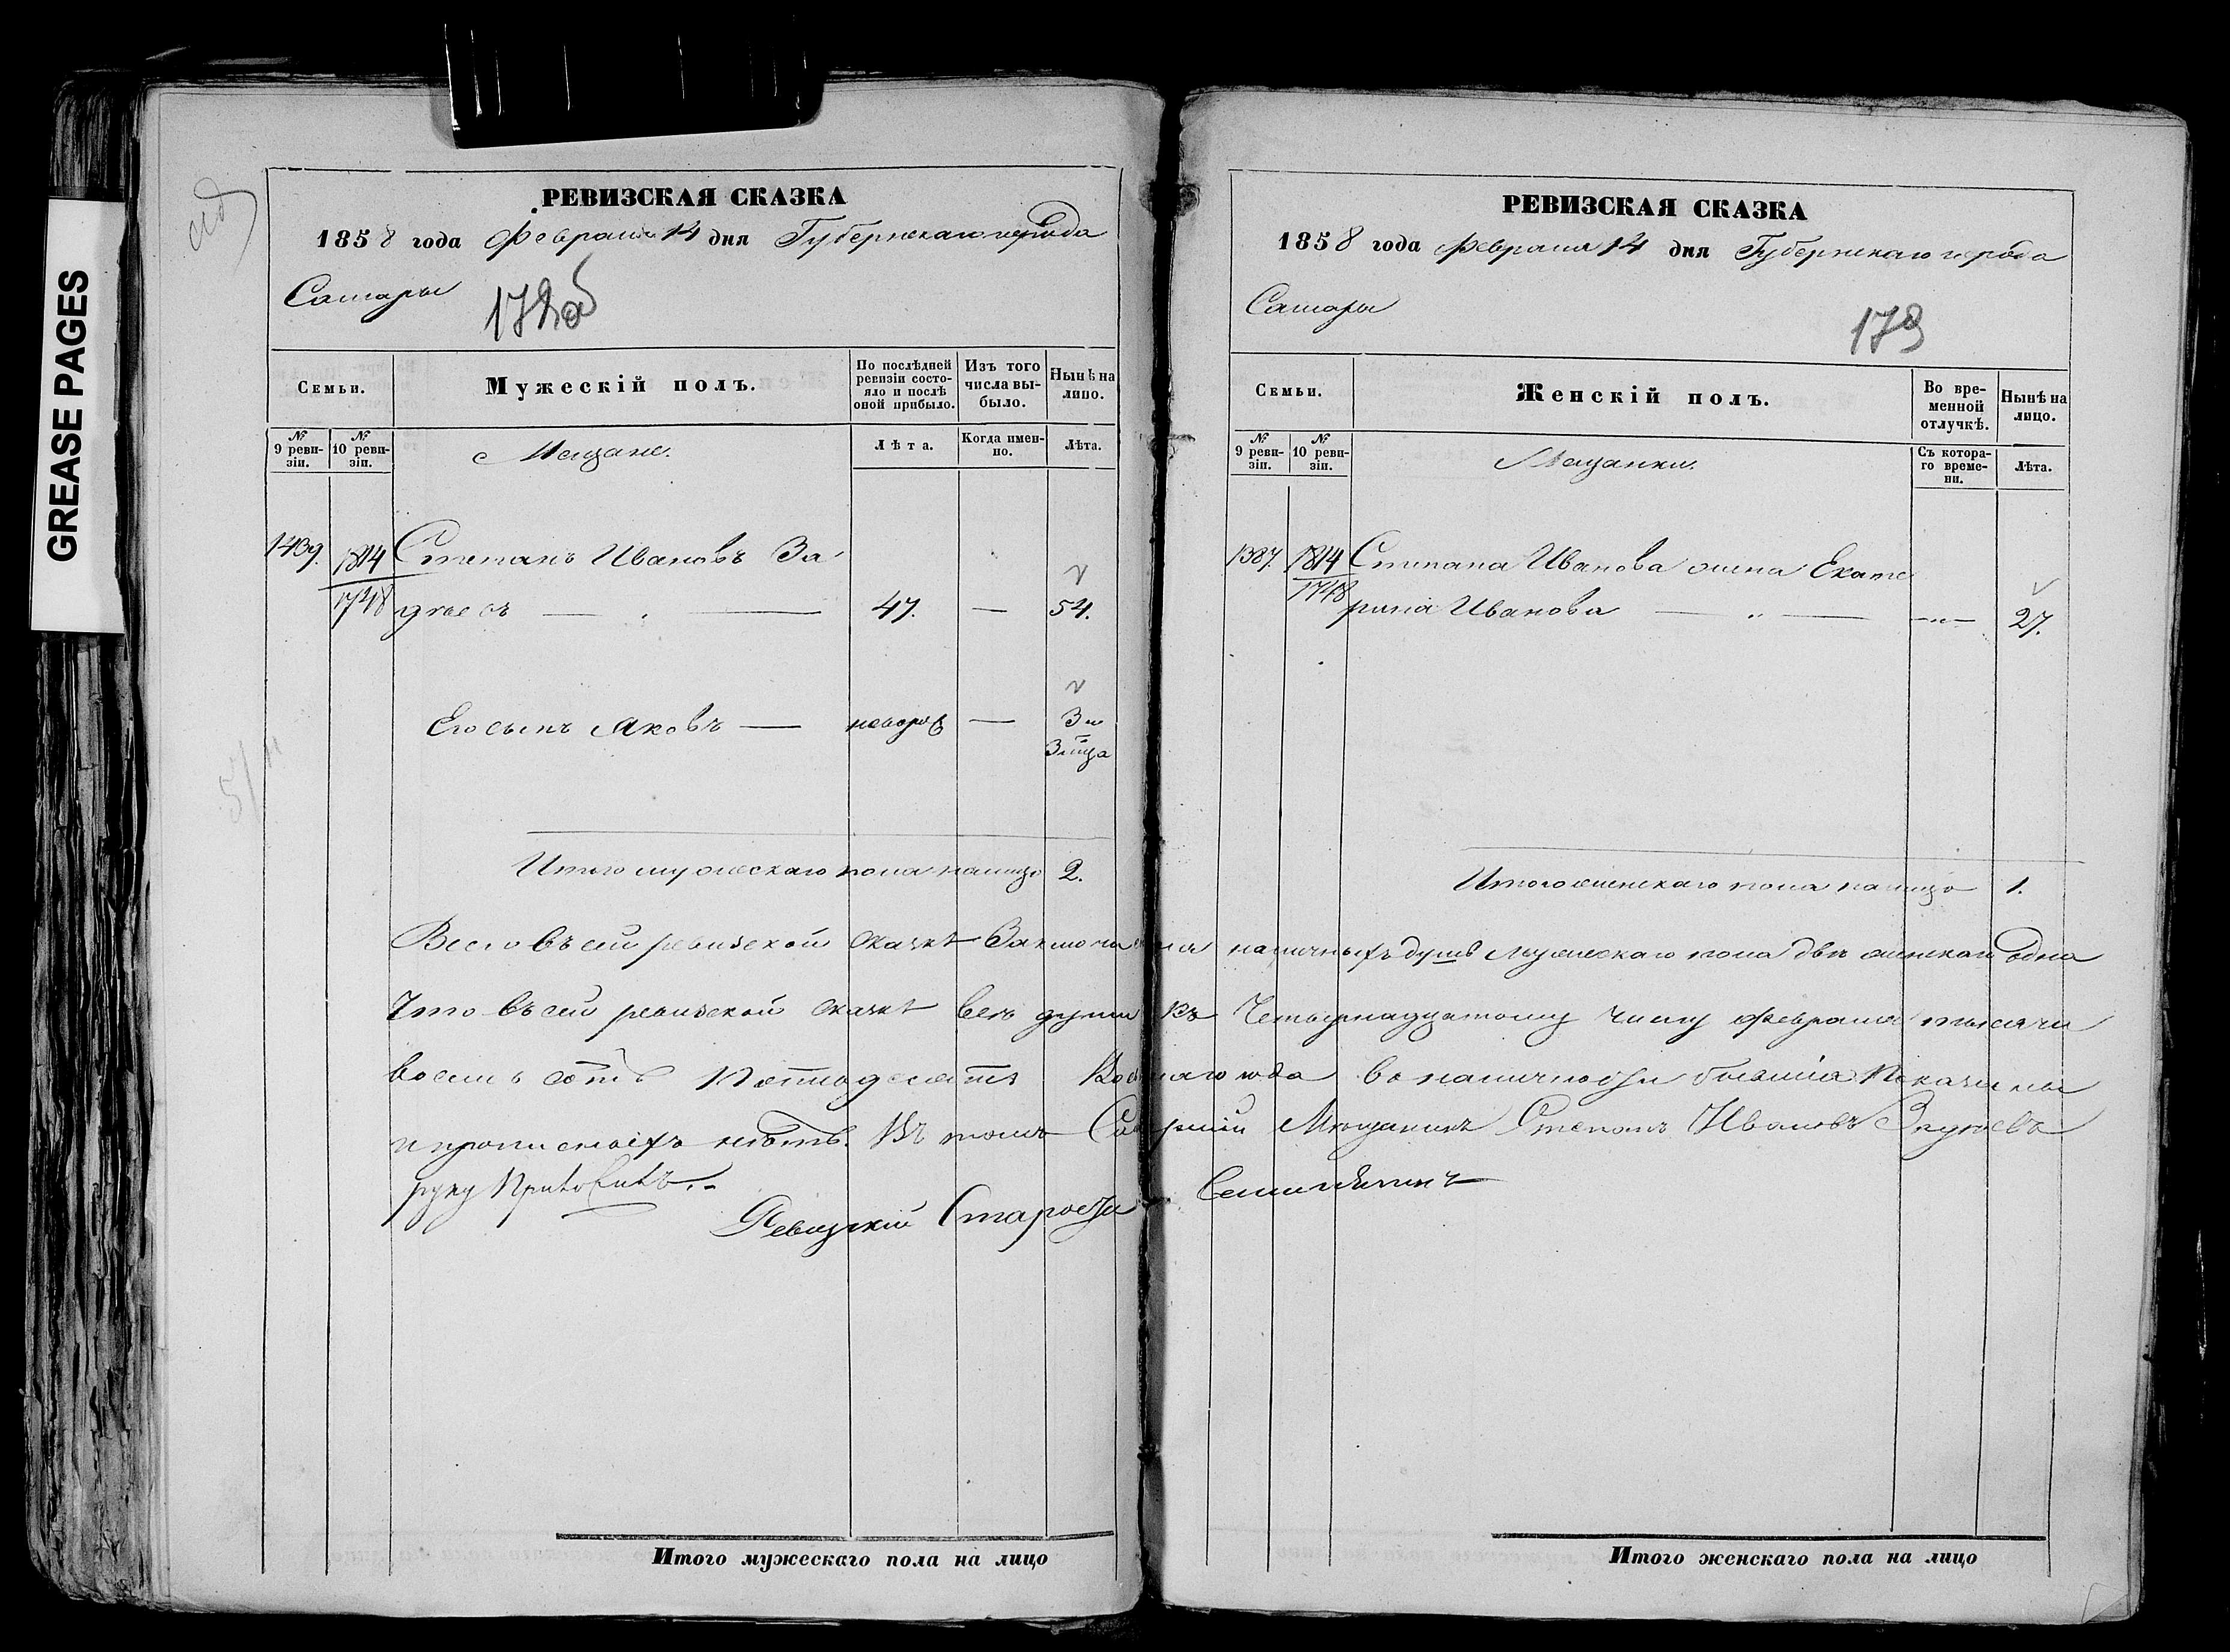 GREASE PAGES
РЕВИЗСКАЯ СКАЗКА
1858 года Февраля 14 дня Губернскаго города
Самары
172об
Семьи.
Мужескій полъ.
По послѣдней ревизіи состояло и послѣ оной прибыло.
Изъ того числа выбыло.
Нынѣ на лицо.
№ 9 ревизіи.
№ 10 ревизіи.
Мещане.
Лѣта.
Когда именно.
Лѣта.
1439.
1814
1748
Степанъ Ивановъ За
47.
—
54.
Его сынъ Яковъ —
новорож
—
3 м
Итого мужескаго пола налицо 2.
РЕВИЗСКАЯ СКАЗКА
1858 года Февраля 14 дня Губернскаго города
Самары
173
Семьи.
Женскій полъ.
Во временной отлучкѣ.
Нынѣ на лицо.
№ 9 ревизіи.
№ 10 ревизіи.
Мещанки.
Съ котораго времени.
Лѣта.
1387.
1814
1748
Степана Иванова жена Екате
рина Иванова
27.
Итого женскаго пола налицо 1.
Всего въ сей ревизской сказкѣ наличныхъ душъ мужескаго пола двѣ женскаго одна
Что въ сей ревизской сказкѣ всѣ души къ Четырнадцатому числу Февраля тысяча
восемь сотъ Пятьдесятъ года въ наличности бывшія Показаны
и прописныхъ нѣтъ. Въ томъ Самарскій Мещанинъ Степанъ Ивановъ
руку Приложилъ.
Ревизскій Староста
Итого мужескаго пола на лицо
Итого женскаго пола на лицо